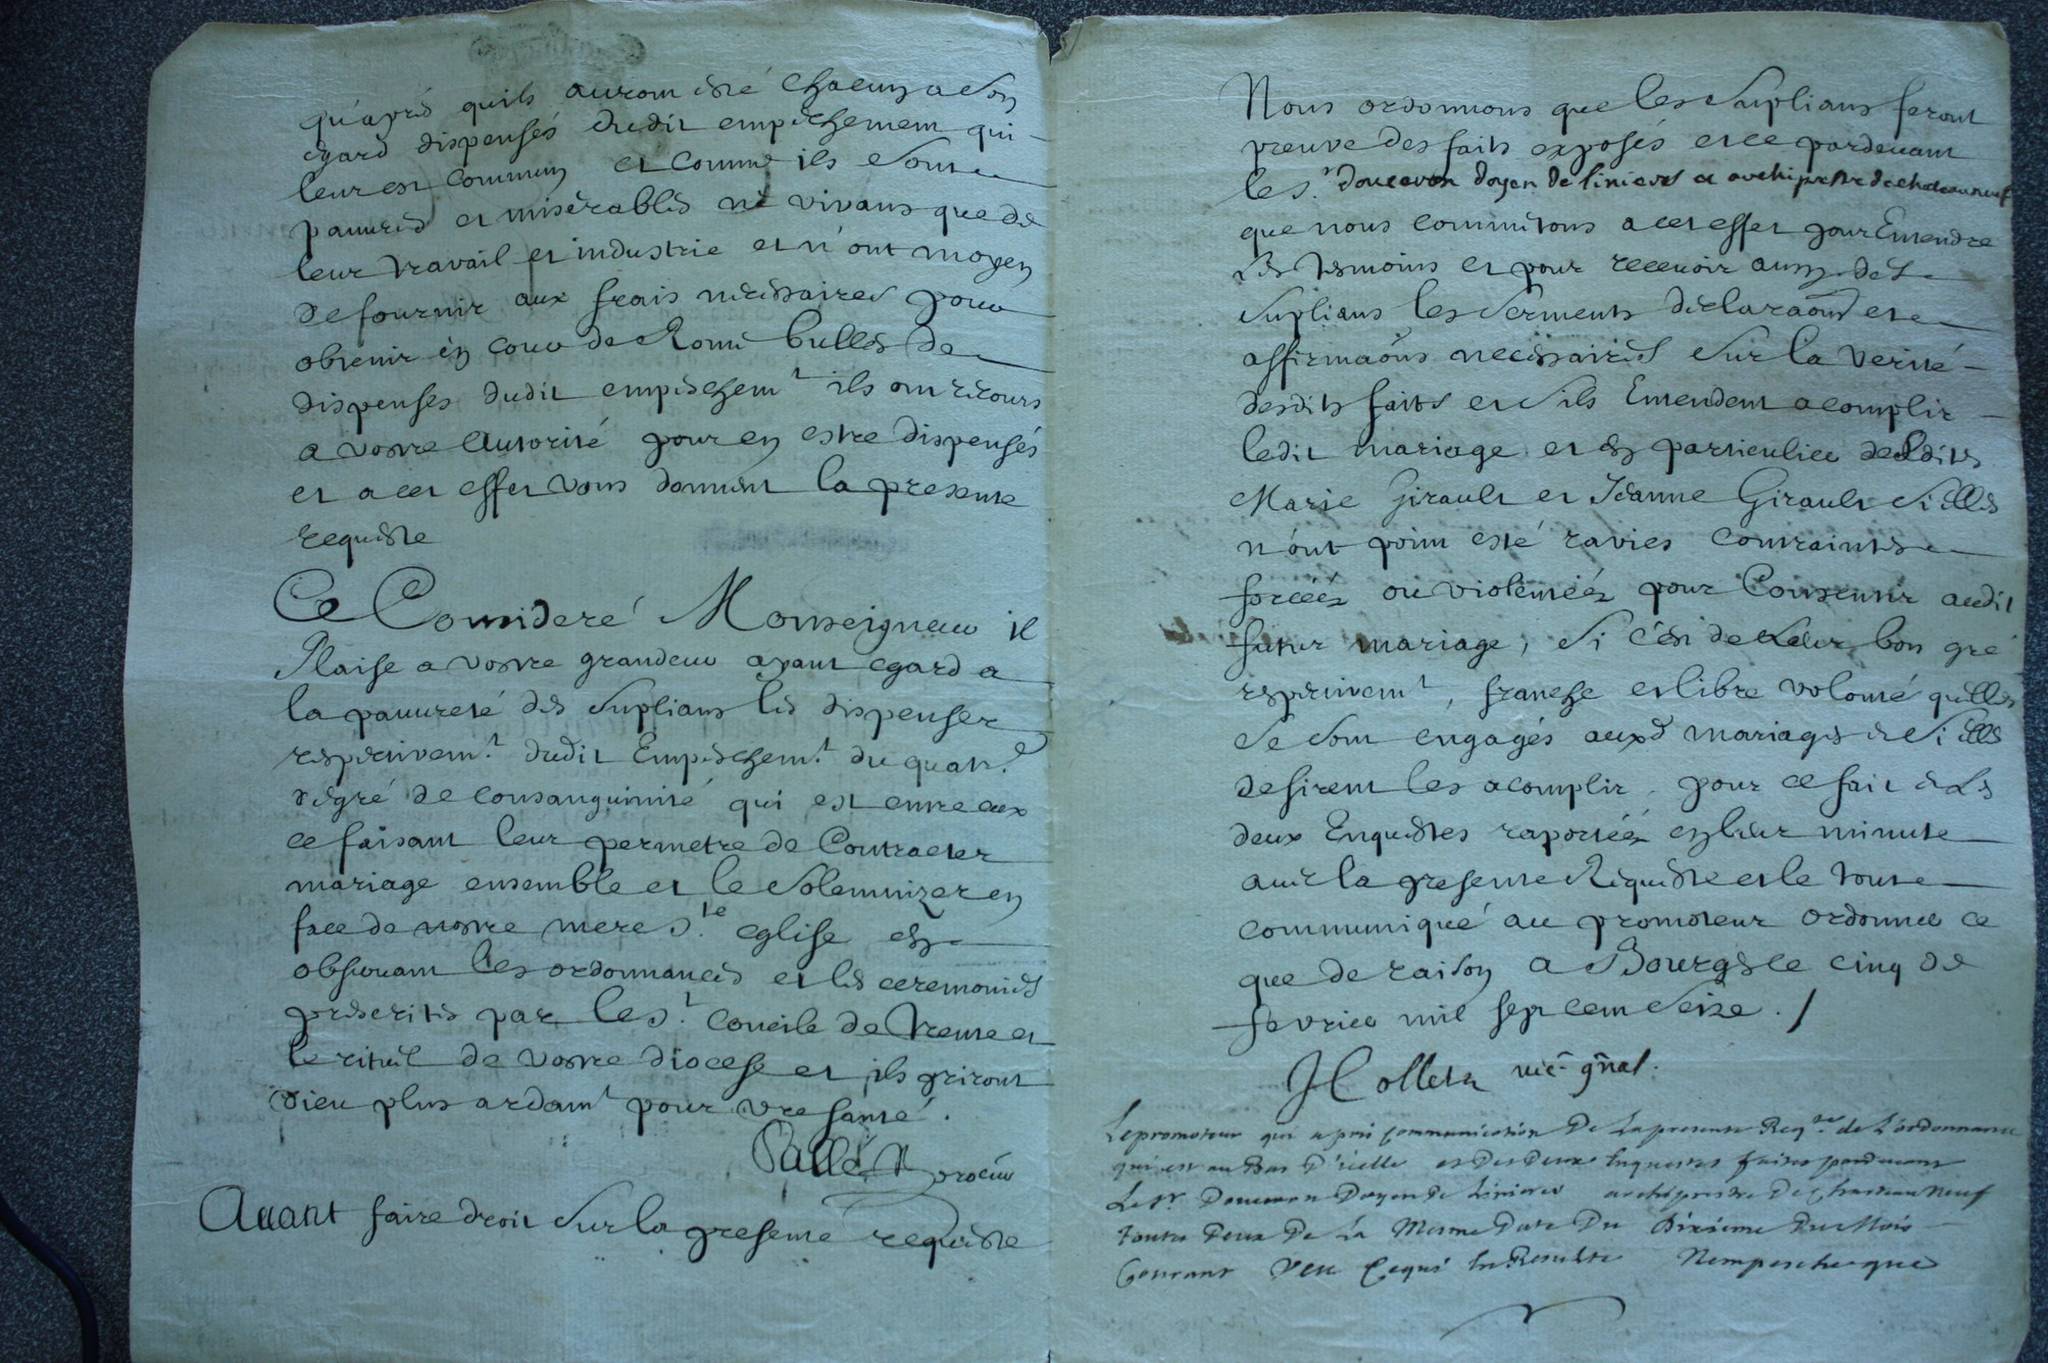 qu'aprés quils auront esté chacun a son
egard dispensés dudit empeschement qui
leur est commun et comme ils sont
pauures et miserables ne viuans que de
leur trauail et industrie et n'ont moyen
de fournir aux frais necessaires pour
obtenir en cour de Rome bulles de
dispenses dudit empeschem.t ils ont recours
a vostre autorité pour en estre dispensés
et a cet effet vous donnent la presente
requeste
Ce Consideré Monseigneur il
Plaise a vostre grandeur ayant egard a
la pauureté des suplians les dispenser
respectivem.t dudit Empeschem.t du quatr.e
degré de consanguinité qui est entre eux
ce faisant leur permetre de Contracter
mariage ensemble et le solemnizer en
face de nostre mere s.te eglise en
obseruant les ordonnances et les ceremonies
prescrites par le s.t concile de trente et
le rituel de vostre diocese et ils priront
dieu plus ardam.t pour vre santé.
Pallé procur
Auant faire droit sur la presente requeste
Nous ordonnons que les suplians feront
preuve des faits exposés et ce pardeuant
le s.r doucevon doyen de linieres et archiprestre de chateauneuf
que nous commetons a cet effet pour Entendre
les tesmoins et pour receuoir aussy des
suplians les serments declaraons et
affirmaons necessaires sur la verité
desdits faits et s'ils Entendent acomplir
ledit mariage et en particulier desdites
Marie Girault et Jeanne Girault si elles
n'ont point esté ravies contraintes
forcées ou violentées pour Consentir audit
futur mariage, si c'est de leur bon gré
respectivem.t, franche et libre volonté quelles
se sont engagés auxd mariages et si elles
desirent les acomplir. pour ce fait et les
deux Enquestes raportées en leur minute
auec la presente Requeste et le tout
communiqué au promoteur ordonner ce
que de raison a Bourges le cinq de
fevrier mil sept cent seize. /
J Collett vic. gnal.
Le promoteur qui a pris communication De La presente Req.te de L'ordonnance
qui est au Bas D'icelle et Des Deux Enquestes faites pardeuant
Le s.r Doucevon Doyen De Linieres archiprestre De Chasteau Neuf
toutes Deux De La Mesme Date Du Dixième Du Mois
Courant Veu Ce qui En Resulte N'empesche que